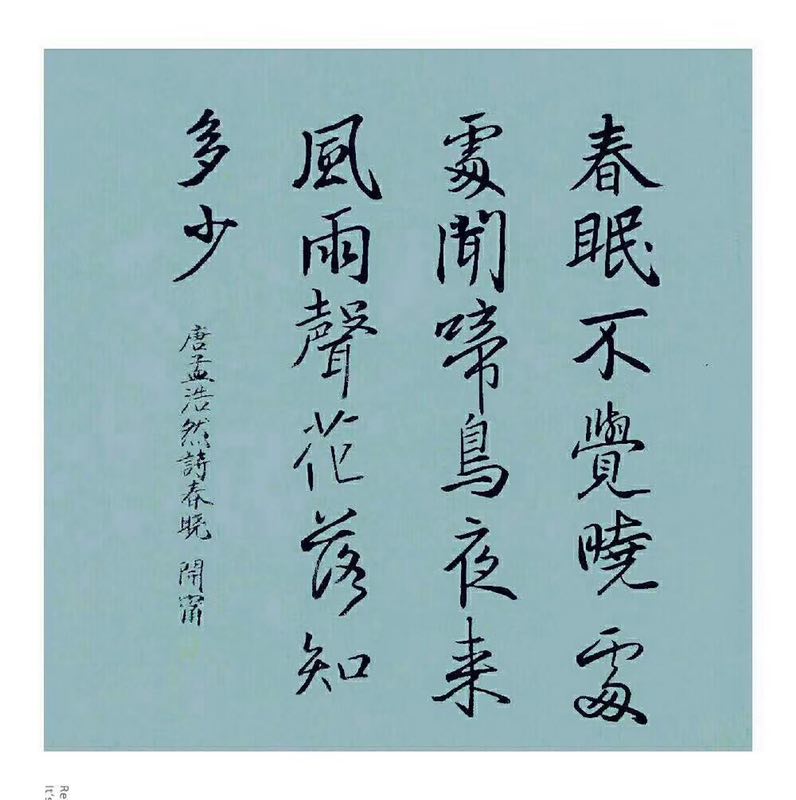 春眠不覺曉處
處聞啼鳥夜来
風雨聲花落知
多少
唐孟浩然詩春曉 開甯
Re
It's